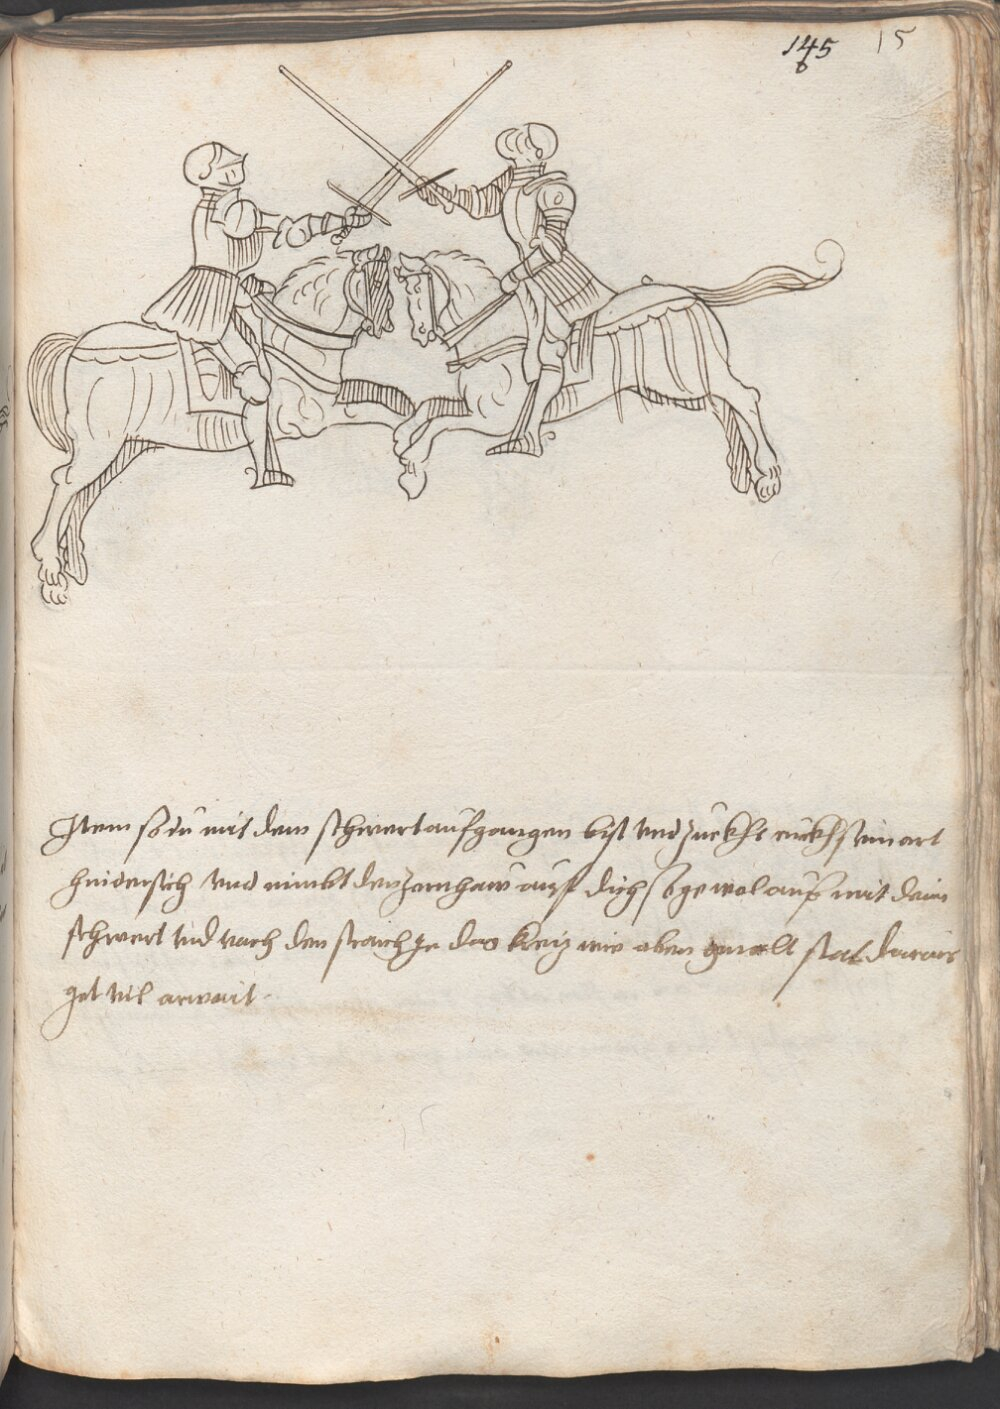 145 15
Item so du mit dem schwert aufgangen bist und zuckhs ruckh sein ort
hindersich vnd nimbt den zornhaw auf dich so ge wol auf mit deim
schwert vnd nach den straich ge das kreiz wie oben gmalt stat daraus
get vil arwait